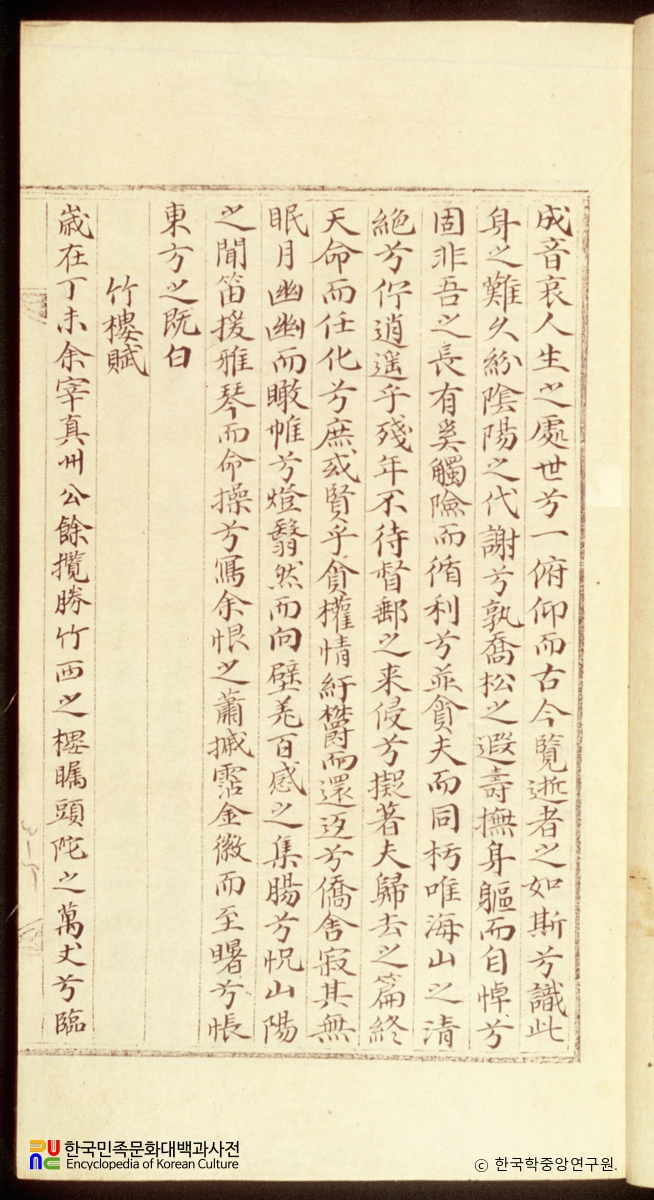 成音哀人生之處世兮一俯仰而古今覽逝者之如斯兮識此
身之難久紛陰陽之代謝兮孰喬松之遐壽撫身軀而自悼兮
固非吾之長有奚觸險而循利兮並貪夫而同朽唯海山之清
絶兮佇逍遥乎殘年不待督郵之来侵兮擬著夫歸去之篇終
天命而任化兮庶或賢乎貪權情紆欝而還迓兮僑舍寂其無
眠月幽幽而瞰帷兮燈翳然而向壁羌百感之集腸兮怳山陽
之聞笛援雅琴而命操兮寫余恨之蕭摵霑金徽而至曙兮悵
東方之既白
竹樓賦
歳在丁未余宰真州公餘攬勝竹西之樓矚頭陀之萬丈兮臨
한국민족문화대백과사전
Encyclopedia of Korean Culture
© 한국학중앙연구원.